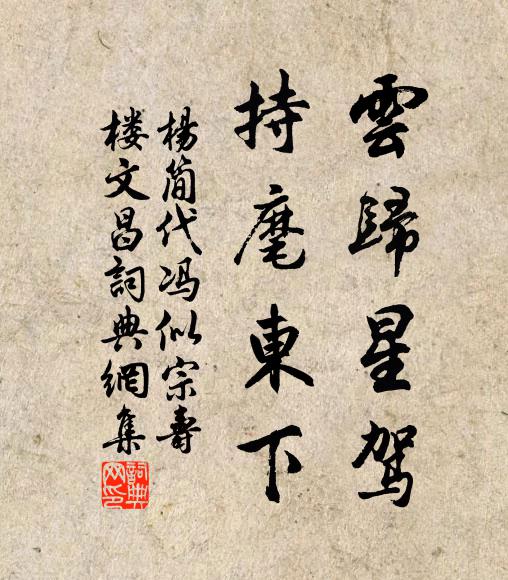 雲歸星驾
持麾東下
楊简代冯似宗壽
楼文昌詞典網集
詞典網印